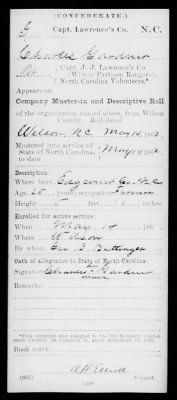 (CONFEDERATE.)
G Capt. Lawrence's Co. N.C.
Charles Gardner
Pvt., Capt. J. J. Lawrence's Co.
(Wilson Partisan Rangers),
North Carolina Volunteers.*
Appears on
Company Muster-in and Descriptive Roll
of the organization named above, from Wilson
County. Roll dated
Wilson, N.C. May 186
Mustered into service of
State of North Carolina, May 186
to date
Description:
Where born Edgecomb Co. N.C.
Age years; occupation Farmer
Height feet inches.
Enlisted for active service:
When May 14 186
Where Wilson
By whom Geo. B.
Oath of allegiance to State of North Carolina:
Signature Charles his Gardner
mark
Remarks:
Book mark:
Copyist.